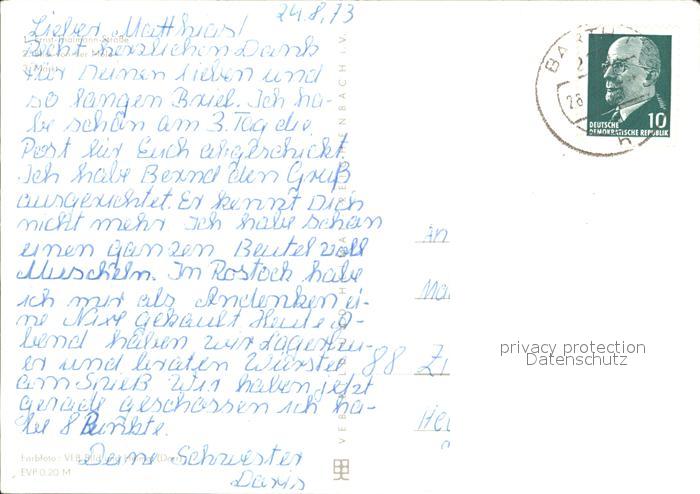 24.8.73
Lieber Matthias!
Recht herzlichen Dank
für Deinen lieben und
so langen Brief. Ich ha-
be schon am 3. Tag die
Post für Euch abgeschickt.
Ich habe Bernd den Gruß
ausgerichtet. Er kennt Dich
nicht mehr. Ich habe schon
einen ganzen Beutel voll
Muscheln. Im Rostock habe
ich mir als Andenken ei-
ne Nixe gekauft. Heute A-
bend haben wir Lagerfeu-
er und braten Würste
am Spieß. Wir haben jetzt
gerade geschossen ich ha-
be 8 Punkte.
Deine Schwester
Doris
EVP 0,20 M
An
88 Z
10
DEUTSCHE
DEMOKRATISCHE REPUBLIK
privacy protection
Datenschutz